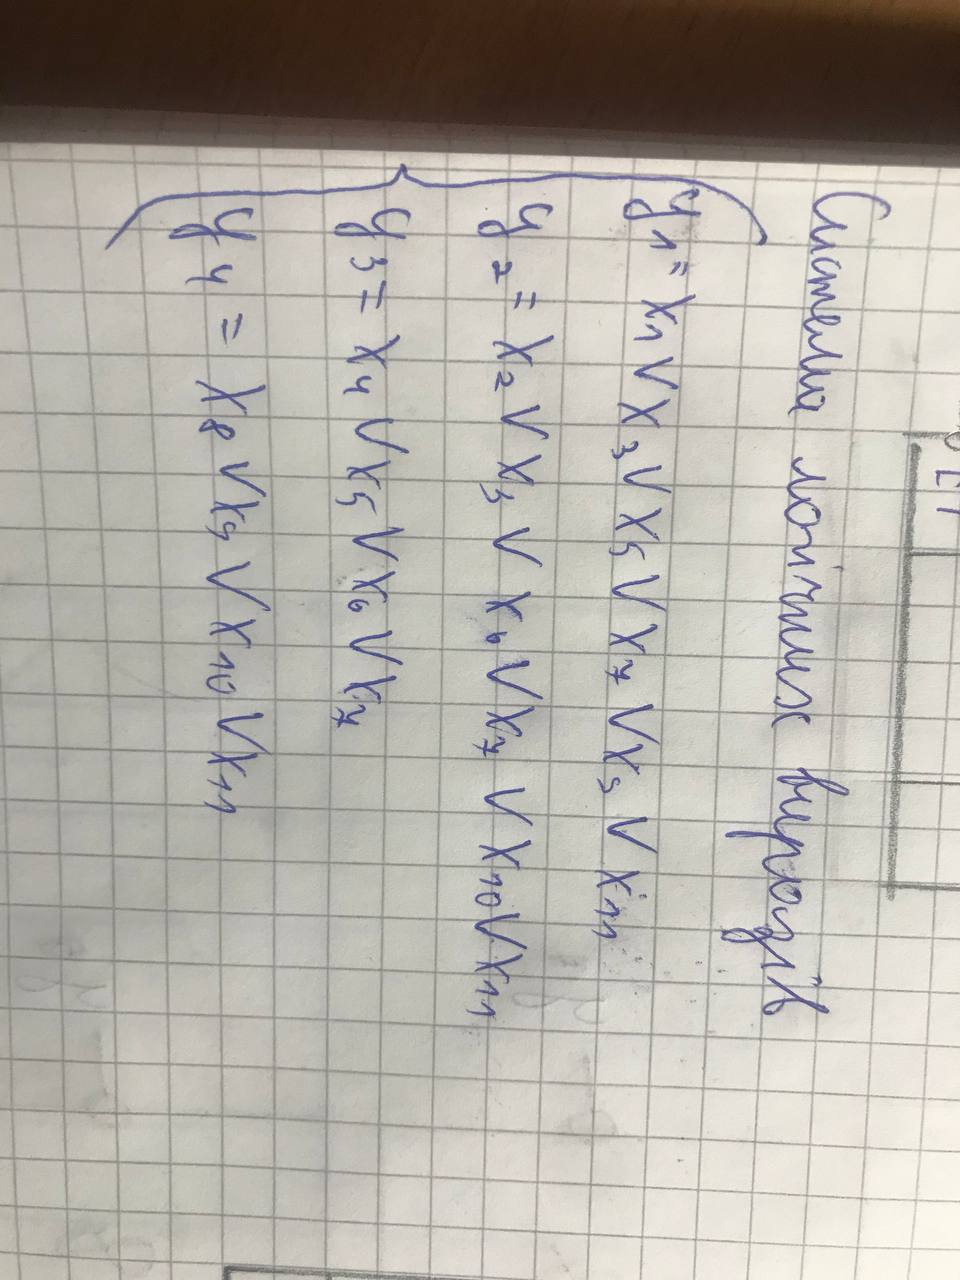 Система логічних виразів
y1 = x1 V x3 V x5 V x7 V x9 V x11
y2 = x2 V x3 V x6 V x7 V x10 V x11
y3 = x4 V x5 V x6 V x7
y4 = x8 V x9 V x10 V x11